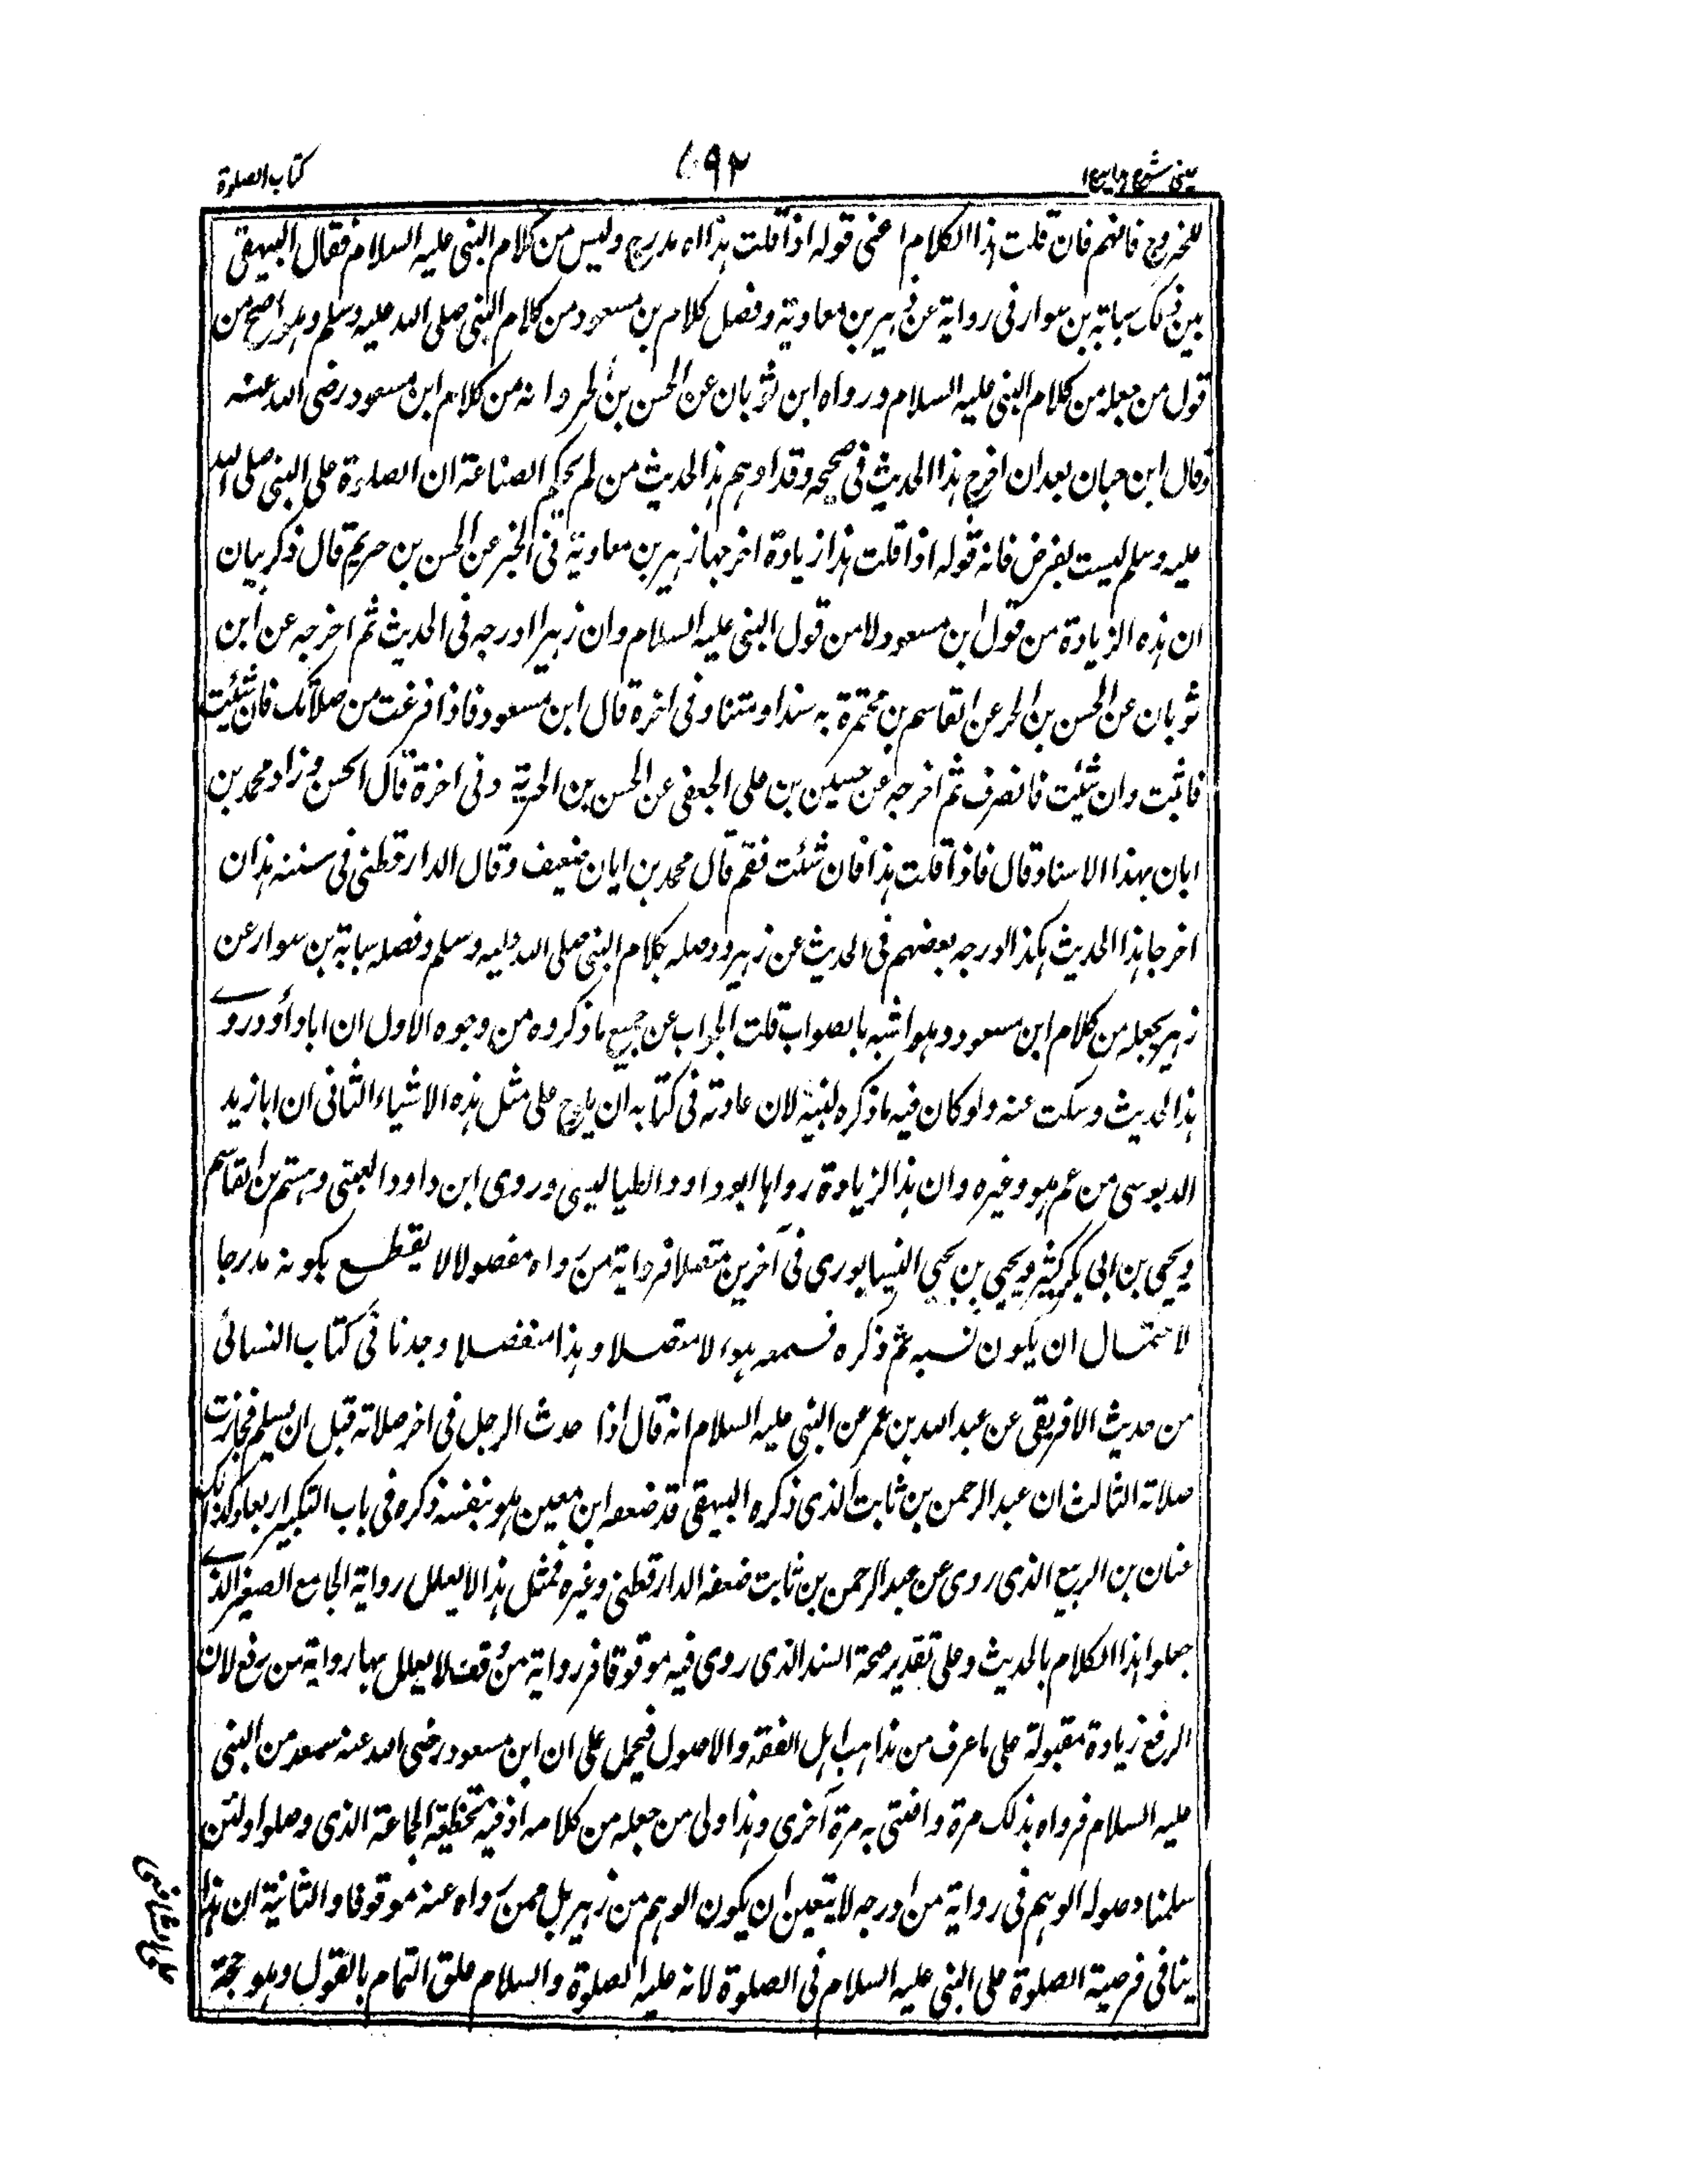 عینی شرح ہدایہ ج۱
۶۹۲
کتاب الصلوة
للخروج فافہم فان قلت ہذا الکلام اعنی قولہ اذا قلت ہذا اہ مدرج ولیس من کلام النبی علیہ السلام فقال البیہقی
بین ذلک سبابة بن سوار فی روایة عن زہیر بن معاویة وفصل کلام بن مسعود من کلام النبی صلی اللہ علیہ وسلم وہو اصح من
قول من جعلہ من کلام النبی علیہ السلام ورواہ ابن ثوبان عن الحسن بن الحر وانہ من کلام ابن مسعود رضی اللہ عنہ
وقال ابن حبان بعد ان اخرج ہذا الحدیث فی صحیحہ وقد اوہم ہذا الحدیث من لم یحکم الصناعة ان الصلوة علی النبی صلی اللہ
علیہ وسلم لیست بفرض فانہ قولہ اذا قلت ہذا زیادة اخرجہا زہیر بن معاویة فی الخبر عن الحسن بن حریم قال ذکر بیان
ان ہذہ الزیادة من قول ابن مسعود لا من قول النبی علیہ السلام وان زہیرا ادرجہ فی الحدیث ثم اخرجہ عن ابن
ثوبان عن الحسن بن الحر عن القاسم بن مخمرة بہ سندا ومتنا وفی اخرہ قال ابن مسعود فاذا فرغت من صلاتک فان شئت
فاثبت وان شئت فانصرف ثم اخرجہ عن حسین بن علی الجعفی عن الحسن بن الحر بہ وفی اخرة قال الحسن وزاد محمد بن
ابان بہذا الاسناد قال فاذا قلت ہذا فان شئت فقم قال محمد بن ابان ضعیف وقال الدارقطنی فی سننہ ہذان
اخرجا ہذا الحدیث ہکذا ادرجہ بعضہم فی الحدیث عن زہیر ووصلہ بکلام النبی صلی اللہ علیہ وسلم وفصلہ سبابة بن سوار عن
زہیر بجعلہ من کلام ابن مسعود وہو اشبہ بالصواب قلت الجواب عن جمیع ما ذکروہ من وجوہ الاول ان ابا داؤد روے
ہذا الحدیث وسکت عنہ ولو کان فیہ ما ذکرہ لنبیہ لان عادتہ فی کتابہ ان یلوح علی مثل ہذہ الاشیاء الثانی ان ابا زید
الدبوسی من عم ہو وغیرہ وان ہذا الزیادة رواہا ابو داود الطیالیسی وروی ابن داود العبقی وہشم بن القاسم
ویحیی بن ابی بکر کثیر ویحیی بن یحیی النیسابوری فی آخرین متصلا فروایة من رواہ مفصولا لا یقطع بکونہ مدرجا
لاحتمال ان یکون نسبہ ثم ذکرہ فسمعہ ہولاء متصلا وہذا منفصلا وجدنا فی کتاب النسائی
من حدیث الافریقی عن عبد اللہ بن عمر عن النبی علیہ السلام انہ قال اذا حدث الرجل فی اخر صلاتہ قبل ان یسلم فجازت
صلاتہ الثالث ان عبد الرحمن بن ثابت الذی ذکرہ البیہقی قد ضعفہ ابن معین ہو بنفسہ ذکرہ فی باب التکبیر اربعا وکذلک
عنان بن الربیع الذی روی عن عبد الرحمن بن ثابت ضعفہ الدارقطنی وغیرہ فمثل ہذا لا یعلل روایة الجامع الصیغر الذے
جعلوا ہذا الکلام بالحدیث وعلی تقدیر صحة السند الذی روی فیہ موقوفا فروایة من وقف لا یعلل بہا روایة من رفع لان
الرفع زیادة مقبولة علی ما عرف من مذاہب اہل الفقہ والاصول فیحمل علی ان ابن مسعود رضی اللہ عنہ سمعہ من النبی
علیہ السلام فرواہ بذلک مرة وافتی بہ مرة آخری وہذا ولی من جعلہ من کلامہ اذ فیہ تخطیة الجماعة الذی وصلوا ولئن
سلمنا وصولہ الوہم فی روایة من ادرجہ لا یتعین ان یکون الوہم من زہیر بل ممن رواہ عنہ موقوفا والثانیة ان ہذا
ینافی فرضیة الصلوة علی النبی علیہ السلام فی الصلوة لانہ علیہ الصلوة والسلام علق التمام بالقول وہو حجة